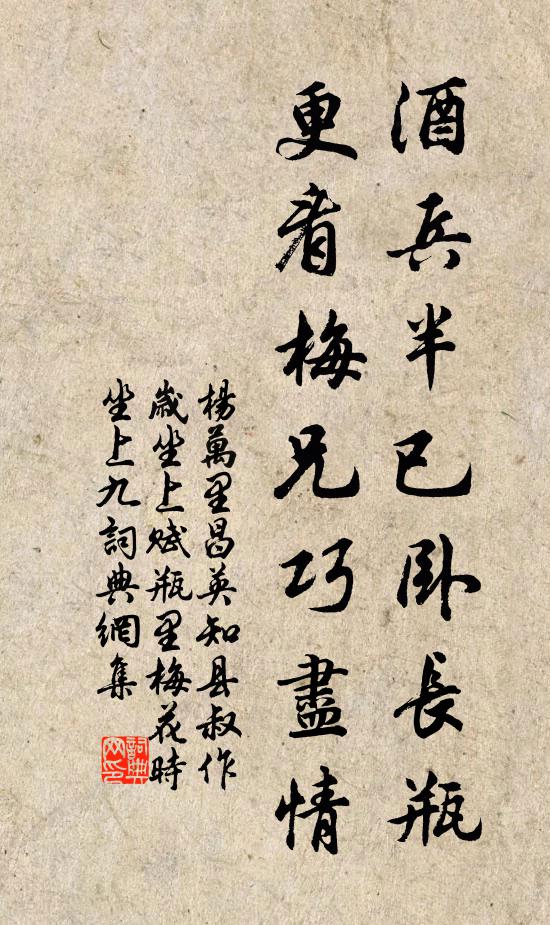 酒兵半已卧長瓶
更看梅兄巧盡情
楊萬里昌英知县叔作
歲坐上賦瓶里梅花時
坐上九詞典網集
詞典網印